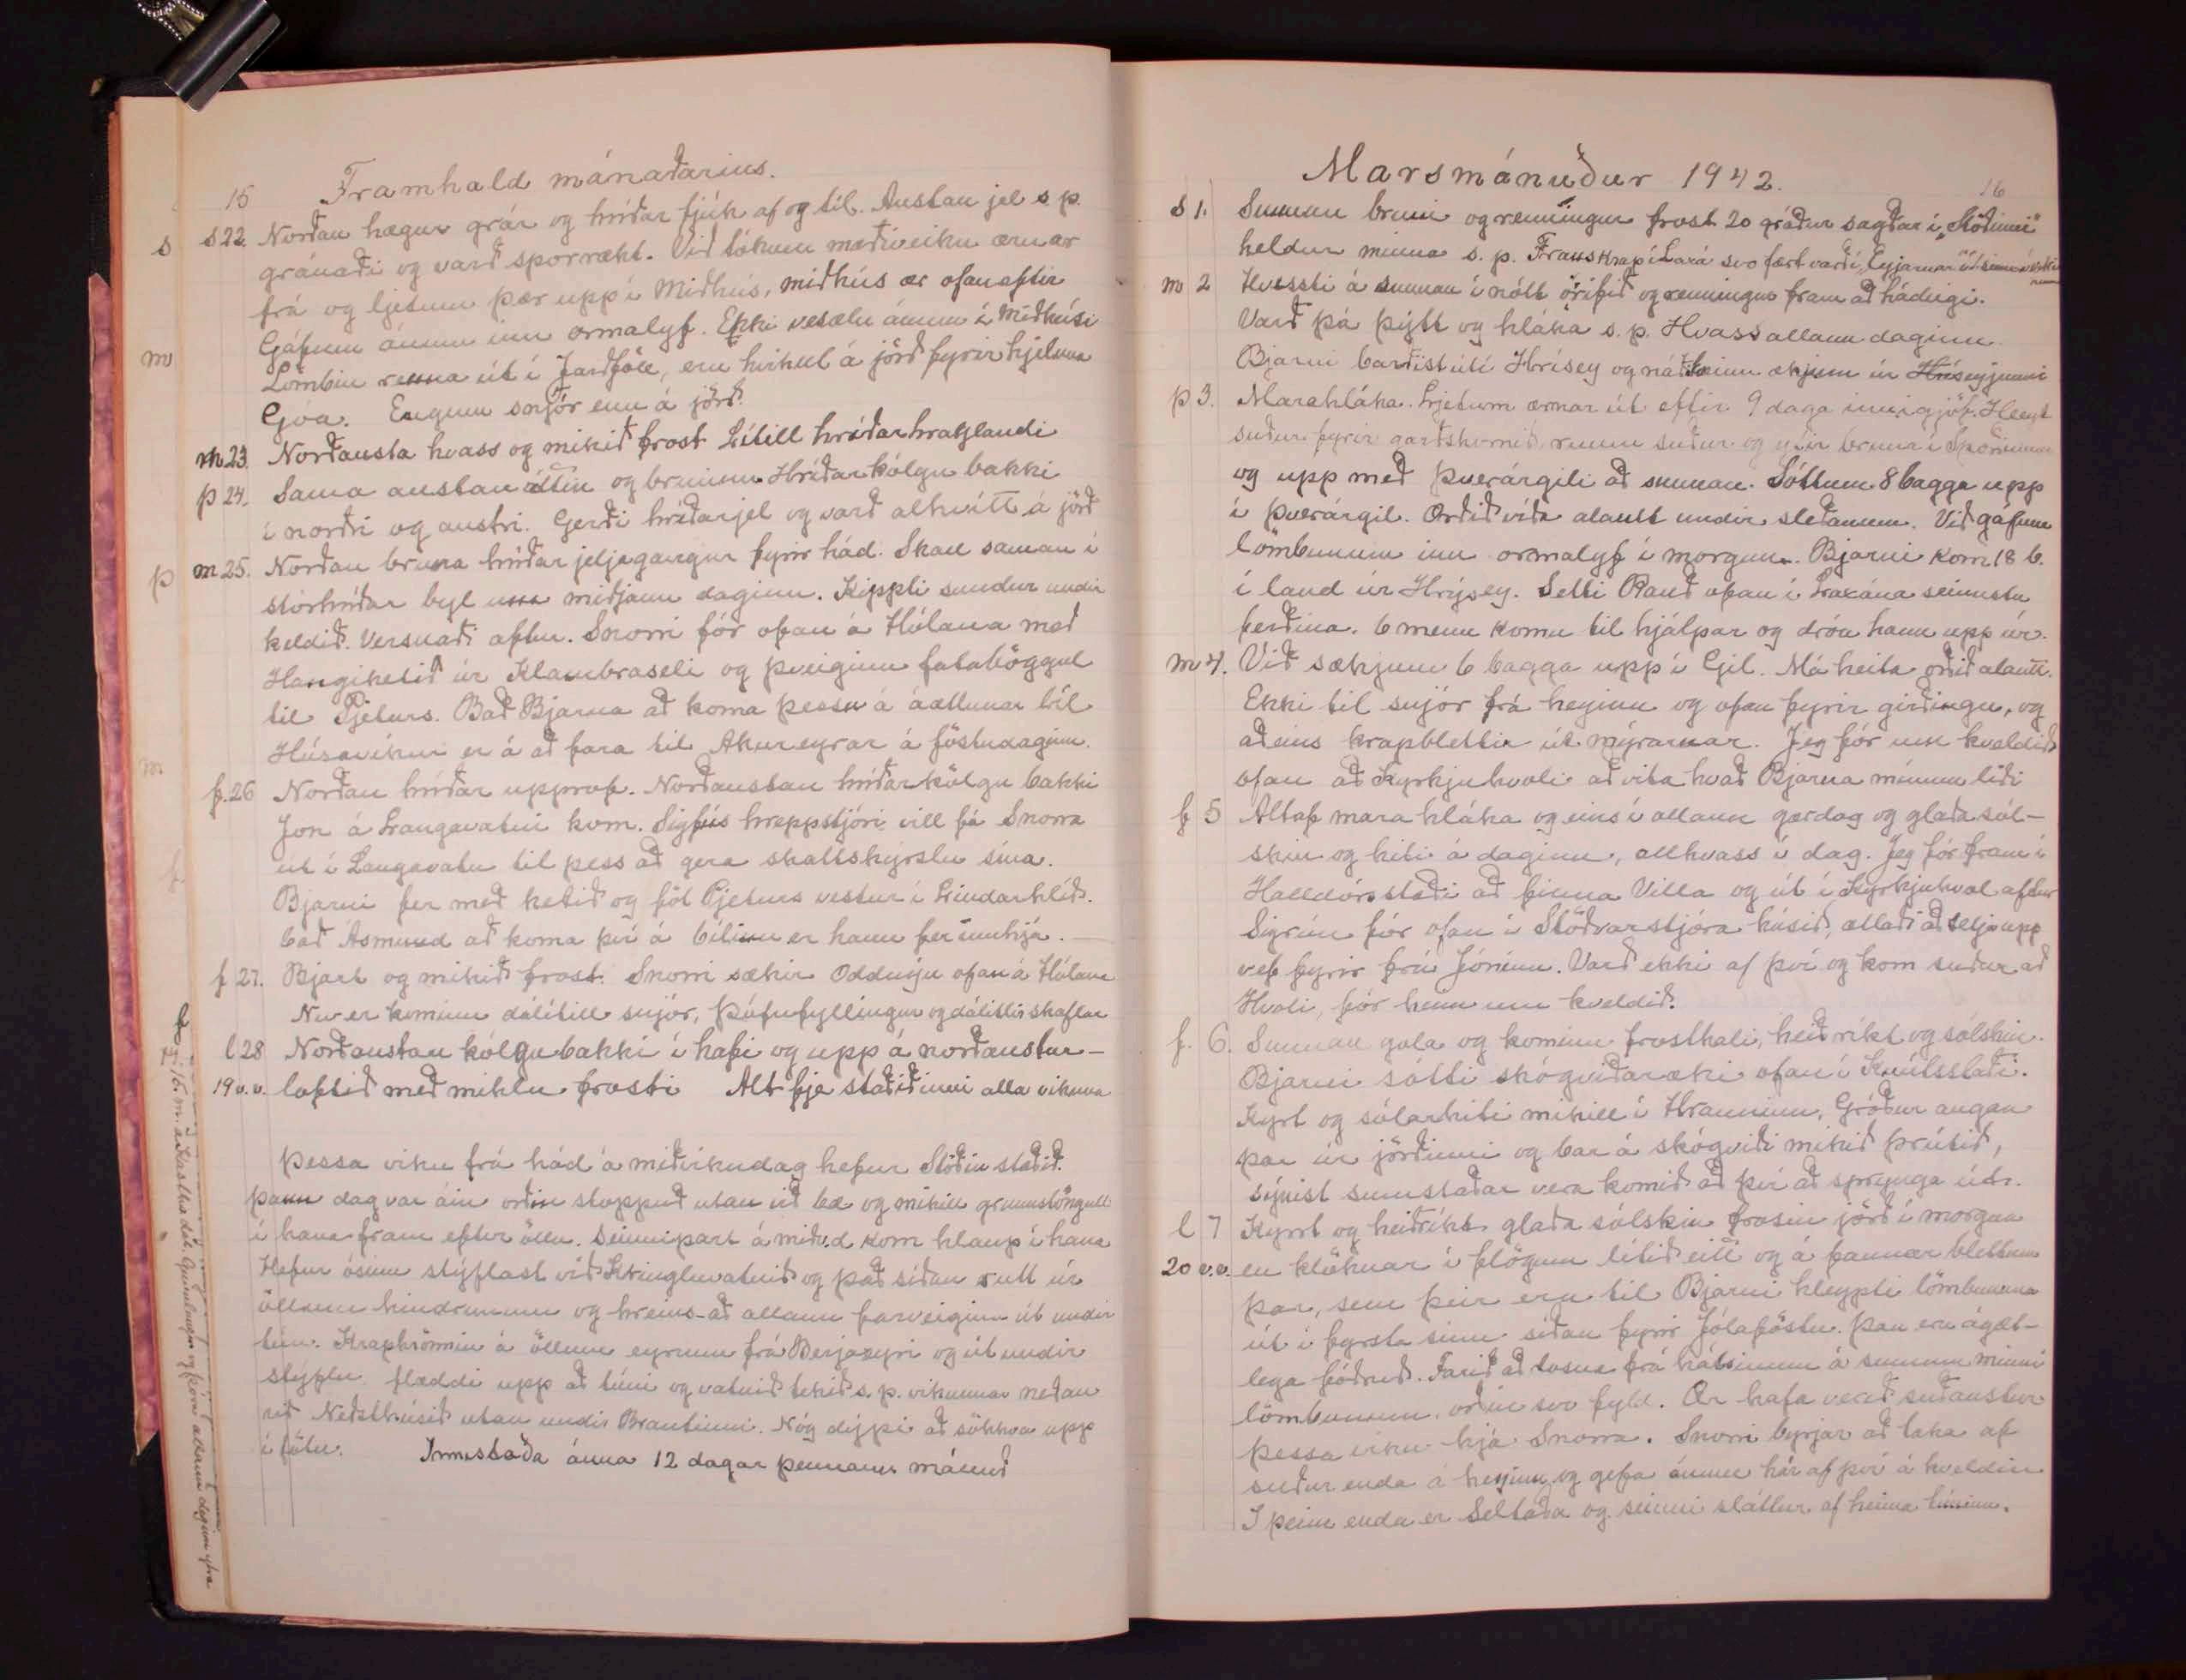 15 Framhald mánaðarins.
s 22. Norðan hægur grár og hríðar fjúk af og til. Austan jel s.p.
gránaði og varð sporrækt. Við tókum mæðiveiku ærnar
frá og ljetum þær upp í Miðhús, miðhús ær ofan eftir
Gáfum ánum inn ormalyf. Ekki vesælu ánum í Miðhúsi
Lömbin renna út í Jarðföll, eru hirkul á jörð fyrir hjeluna
Góa. Engum snjór enn á jörð.
m 23. Norðausta hvass og mikið frost Lítill hríðarhraglandi
þ 24. Sama austan áttin og bruninn. Hríðarkólgu bakki
í norðri og austri. Gerði hríðarjel og varð alhvítt á jörð
m 25. Norðan bruna hríðar jeljagangur fyrir hád. Skall saman í
stórhríðar byl um miðjann daginn. Kippti sundur undir
keldið. Versnaði aftur. Snorri fór ofan á Hólana með
Hangiketið úr Klambraseli og þveiginn fataböggul
til Pjeturs. Bað Bjarna að koma þessu á áætlunar bíl
Húsavíkur er á að fara til Akureyrar á föstudaginn.
f. 26 Norðan hríðar upprof. Norðaustan hríðarkólgu bakki
Jon á Langavatni kom. Sigfús hreppstjóri vill fá Snorra
út í Langavatn til þess að gera skattskýrslu sína.
Bjarni fer með ketið og föt Pjeturs vestur í Lindarhlíð.
bað Ásmund að koma því á bílinn er hann fer innhjá.
f 27. Bjart og mikið frost. Snorri sækir Oddnýju ofan á Hólana
Nu er kominn dálítill snjór, Þúfufyllingur og dálitlir skaflar
l 28 Norðaustan kólgubakki í hafi og upp á norðaustur-
19 v.v. loftið með miklu frosti Alt fje staðið inni alla vikuna
þessa viku frá hád á miðvikudag hefur Stöðin staðið.
þann dag var áin orðin stoppuð utan við bæ og mikill grunnstöngull
í hana fram eftir öllu. Seinnipart á miðv.d kom hlaup í hana
Hefur ósinn stýflast við Kringluvatnið og það síðan rutt úr
öllum hindrunum og hreins-að allann farveiginn út undir
tún. Kraphrönnin á öllum eyrum frá Berjaeyri og út undir
stýflu. flæddi upp að túni og vatnið tekið s.p. vikunnar neðan
við Neðsthúsið utan undir Brautinni. Nóg dýpi að sökkva upp
í fötu. Innistaða ánna 12 dagar þennann mánuð
Marsmánuður 1942.
16
s 1. Sunnan bruni og renningur frost 20 gráður sagðar í „Stöðinni"
heldur minna s.p. Frausskrap í Laxá svo fært varð í Eyjarnar
m 2 Hvessti á sunnan í nótt örifið og renningur fram að hádegi.
Varð þá þýtt og hláka s.p. Hvass allann daginn
Bjarni barðist úti Hrísey og náði einn ækjum úr Hríseyjunni
þ 3. Marahláka. Ljetum ærnar út eftir 9 daga innigjöf.
suður fyrir garðshornið, runnu suður og yfir bruna í
og upp með Þverárgili að sunnan. Sóttum 8 bagga upp
í Þverárgil. Orðið víða alautt undir sleðanum. Við gáfum
lömbunum inn ormalyf í morgun. Bjarni kom 18 b.
í land úr Hrísey. Setti Rauð ofan í Laxána seinustu
ferðina. 6 menn komu til hjálpar og dróu hann upp úr.
m 4. Við sækjum 6 bagga upp í Gil. Má heita orðið alautt.
Ekki til snjór frá heyinu og ofan fyrir girðingu, og
aðeins krapblettir út mýrarnar. Jeg fór um kveldið
ofan að Kyrkjuhvoli að vita hvað Bjarna mínum líði
f 5 Altaf mara hláka og eins í allann gærdag og glaða sól-
skin og hiti á daginn, allhvass í dag. Jeg fór fram í
Halldórsstaði að finna Villa og út í Kyrkjuhvol aftur
Sigrún fór ofan í Stöðvarstjóra húsið, ætlaði að setja upp
vef fyrir frú Jónínu. Varð ekki af því og kom suður að
Hvoli, fór heim um kveldið.
f. 6. Sunnan gola og kominn frosthali, heiðríkt og sólskin.
Bjarni sótti skógviðaræki ofan í Knútsstaði.
Kyrt og sólarhiti mikill í Hrauninu, Gróður angan
þar úr jörðinni og bar á skógviði mikið þrútið,
sýnist sumstaðar vera komið að því að sprynga út.
l 7 Kyrrt og heiðríkt glaða sólskin frosin jörð í morgun
20 v.v. en klöknar í flögum lítið eitt og á fannar blettum
þar, sem þeir eru til Bjarni hleypti lömbunum
út í fyrsta sinn síðan fyrir Jólaföstu. Þau eru ágæt-
lega fóðruð. Farið að losna frá hálsinum á sumum minni
lömbunum, orðin svo fyld. Ær hafa verið suðaustur
þessa viku hjá Snorra. Snorri byrjar að taka af
suður enda á heyinu og gefa ánum hár af því á kveldin
Í þeim enda er Seltaða og seinni sláttur af heima túninu.